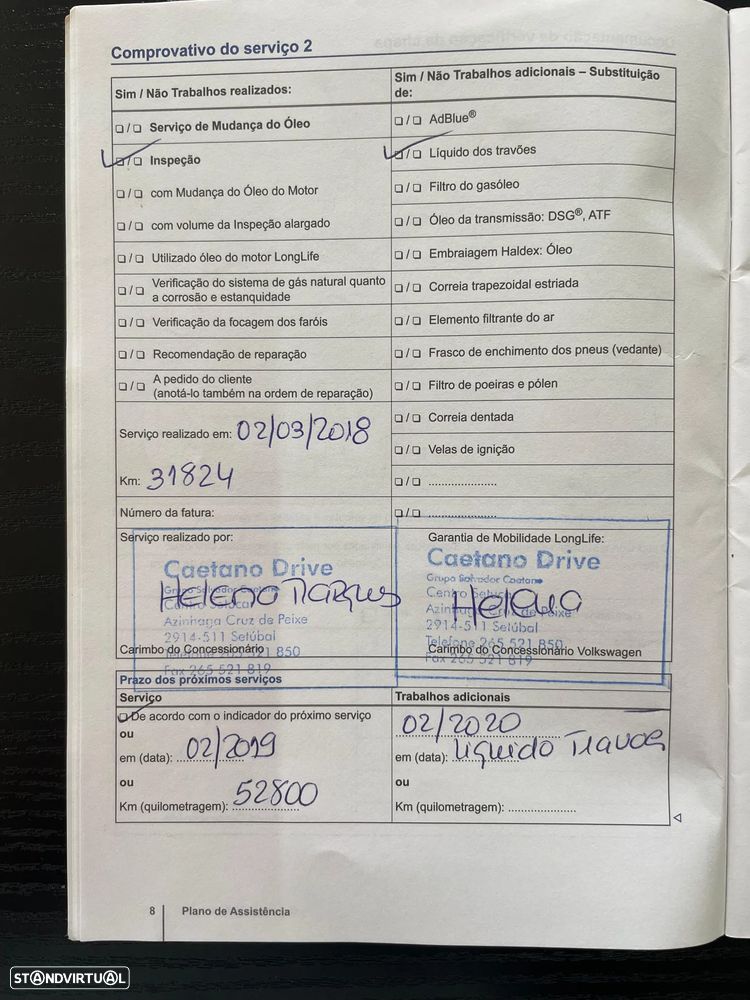 Comprovativo do serviço 2
Sim / Não Trabalhos realizados:
❏ / ❏ Serviço de Mudança do Óleo
❏ / ❏ Inspeção
❏ / ❏ com Mudança do Óleo do Motor
❏ / ❏ com volume da Inspeção alargado
❏ / ❏ Utilizado óleo do motor LongLife
❏ / ❏ Verificação do sistema de gás natural quanto
a corrosão e estanquidade
❏ / ❏ Verificação da focagem dos faróis
❏ / ❏ Recomendação de reparação
❏ / ❏ A pedido do cliente
(anotá-lo também na ordem de reparação)
Serviço realizado em: 02/03/2018
Km: 31824
Número da fatura:
Sim / Não Trabalhos adicionais – Substituição
de:
❏ / ❏ AdBlue®
❏ / ❏ Líquido dos travões
❏ / ❏ Filtro do gasóleo
❏ / ❏ Óleo da transmissão: DSG®, ATF
❏ / ❏ Embraiagem Haldex: Óleo
❏ / ❏ Correia trapezoidal estriada
❏ / ❏ Elemento filtrante do ar
❏ / ❏ Frasco de enchimento dos pneus (vedante)
❏ / ❏ Filtro de poeiras e pólen
❏ / ❏ Correia dentada
❏ / ❏ Velas de ignição
❏ / ❏ .....................
❏ / ❏ .....................
Serviço realizado por:
Caetano Drive
Grupo Salvador Caetano
Helena Marques
Centro Setúbal
Azinhaga Cruz de Peixe
2914-511 Setúbal
Carimbo do Concessionário
Telefone 265 521 850
Fax 265 521 819
Garantia de Mobilidade LongLife:
Caetano Drive
Grupo Salvador Caetano
Centro Setúbal
Helena
Azinhaga Cruz de Peixe
2914-511 Setúbal
Telefone 265 521 850
Carimbo do Concessionário Volkswagen
Fax 265 521 819
Prazo dos próximos serviços
Serviço
❏ De acordo com o indicador do próximo serviço
ou
em (data): 02/2019
ou
Km (quilometragem): 52800
Trabalhos adicionais
02/2020
em (data): Líquido Travões
ou
Km (quilometragem): .....................
8 Plano de Assistência
STANDVIRTUAL